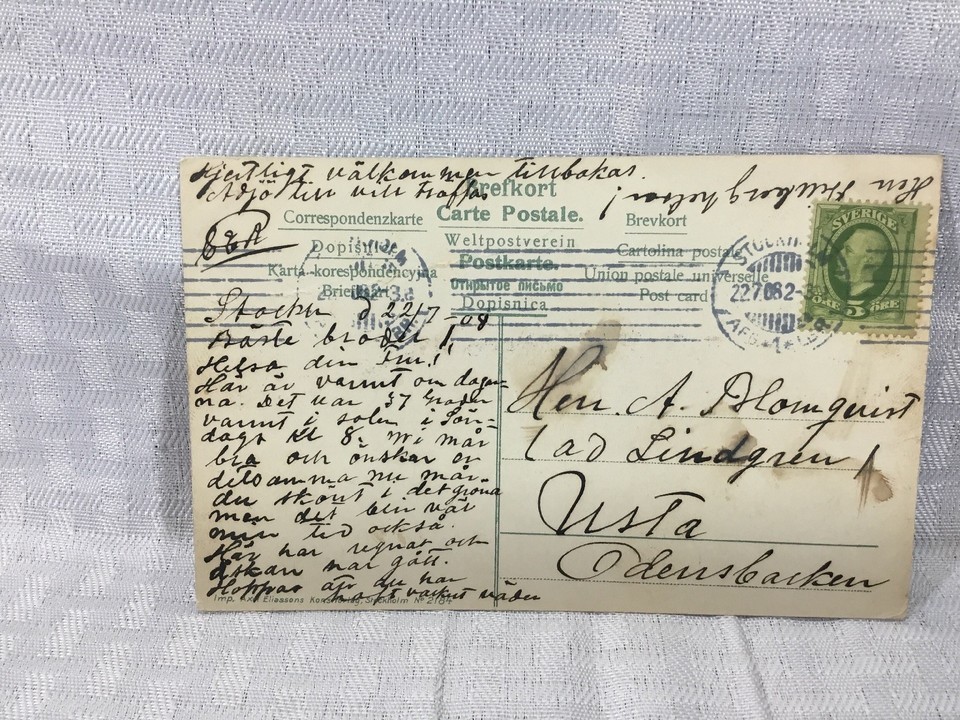 Hjertligt välkommen tillbakas.
Adjö till vi träffas
Herr Hillborg helsar!
Brefkort
Correspondenzkarte Carte Postale. Brevkort
Dopisnice Weltpostverein Cartolina postale
Karta korespondencyjna Postkarte. Union postale universelle
Briefkaart Открытое письмо Post card
Dopisnica
SVERIGE
5 ÖRE
STOCKHOLM
22.7.08
Stockh d 22/7-08
Bäste broder!
Helsa din fru!!
Här är varmt om dagar-
na. Det var 37 grader
varmt i solen i Sön-
dags Kl 8. Vi mår
bra och önskar er
detsamma nu mår
du skönt i det gröna
men det blir vår
min tid också.
Här har regnat och
åskan har gått.
Hoppas att du har
haft vackert väder
Herr. A. Blomqvist
(ad Lindgren)
Usta
Odensbacken
Imp. Axel Eliassons Konstförlag, Stockholm Nº 2184